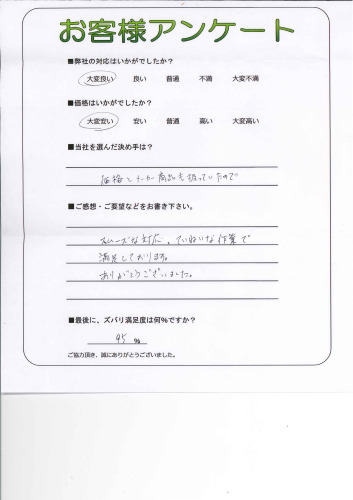 お客様アンケート
■弊社の対応はいかがでしたか？
大変良い 良い 普通 不満 大変不満
■価格はいかがでしたか？
大変安い 安い 普通 高い 大変高い
■当社を選んだ決め手は？
価格とメーカー商品を扱っていたので
■ご感想・ご要望などをお書き下さい。
スムーズな対応、ていねいな作業で
満足しております。
ありがとうございました。
■最後に、ズバリ満足度は何%ですか？
95 %
ご協力頂き、誠にありがとうございました。